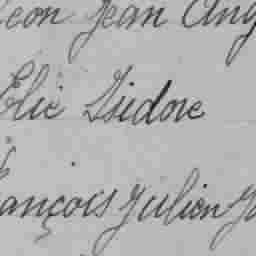 Leon Jean Aug
Elie Isidore
François Julien